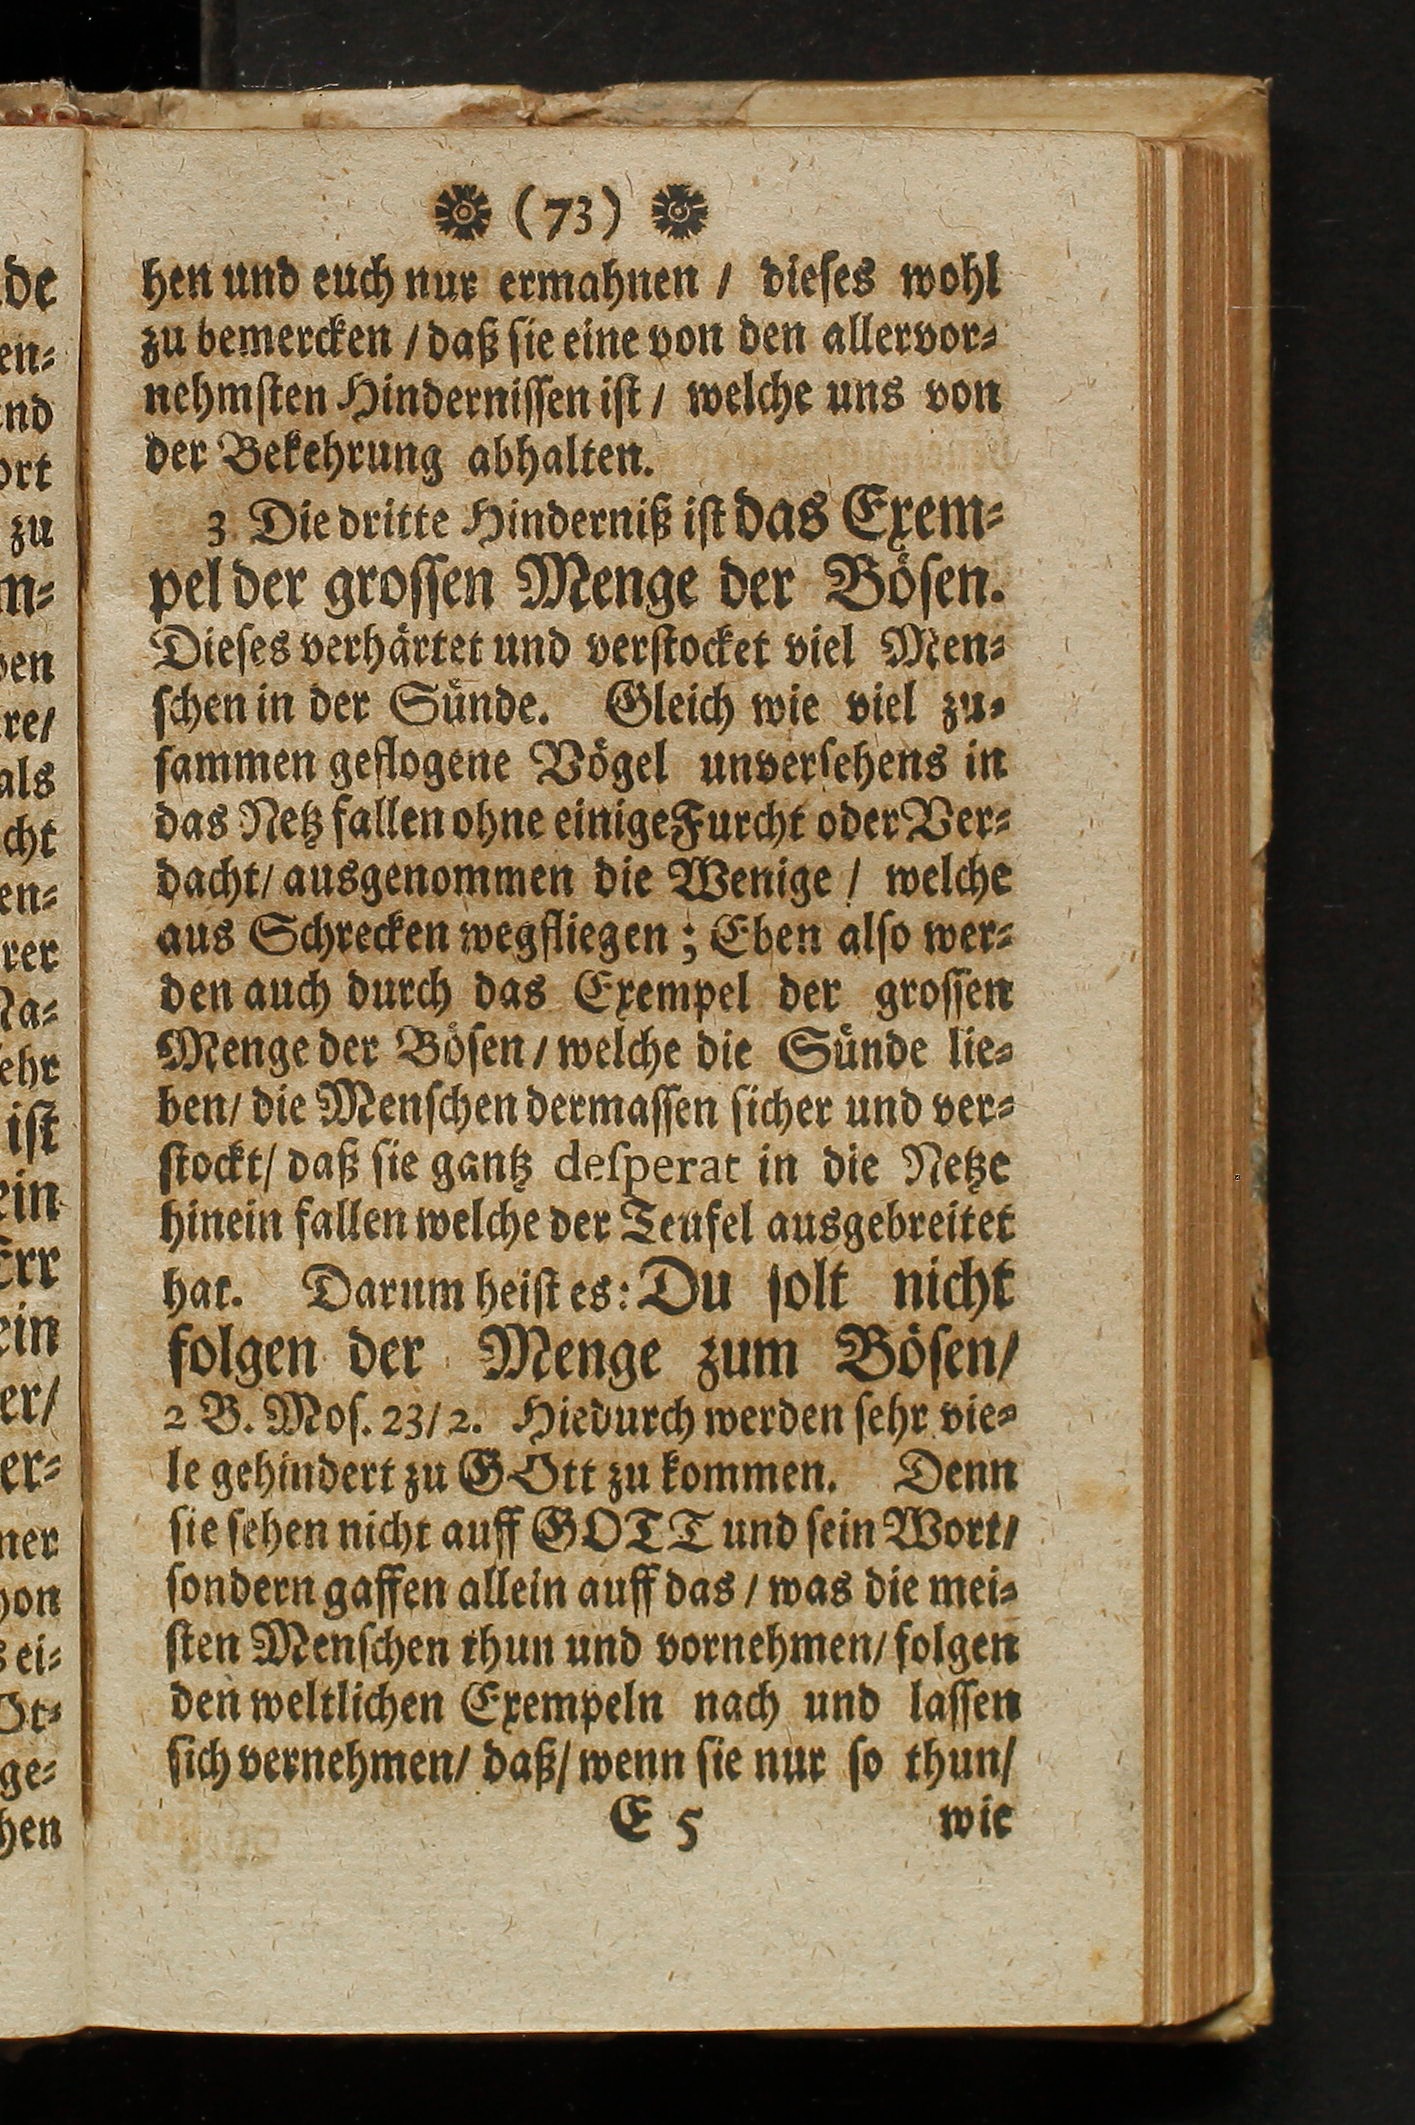 (73)
hen und euch nur ermahnen / dieses wohl
zu bemercken / daß sie eine von den allervor-
nehmsten Hindernissen ist / welche uns von
der Bekehrung abhalten.
3 Die dritte Hinderniß ist das Exem-
pel der grossen Menge der Bösen.
Dieses verhärtet und verstocket viel Men-
schen in der Sünde. Gleich wie viel zu-
sammen geflogene Vögel unversehens in
das Netz fallen ohne einige Furcht oder Ver-
dacht / ausgenommen die Wenige / welche
aus Schrecken wegfliegen; Eben also wer-
den auch durch das Exempel der grossen
Menge der Bösen / welche die Sünde lie-
ben / die Menschen dermassen sicher und ver-
stockt / daß sie gantz desperat in die Netze
hinein fallen welche der Teufel ausgebreitet
hat. Darum heist es: Du solt nicht
folgen der Menge zum Bösen/
2 B. Mos. 23/2. Hiedurch werden sehr vie-
le gehindert zu GOtt zu kommen. Denn
sie sehen nicht auff GOTT und sein Wort/
sondern gaffen allein auff das / was die mei-
sten Menschen thun und vornehmen/ folgen
den weltlichen Exempeln nach und lassen
sich vernehmen/ daß/ wenn sie nur so thun/
E 5 wie